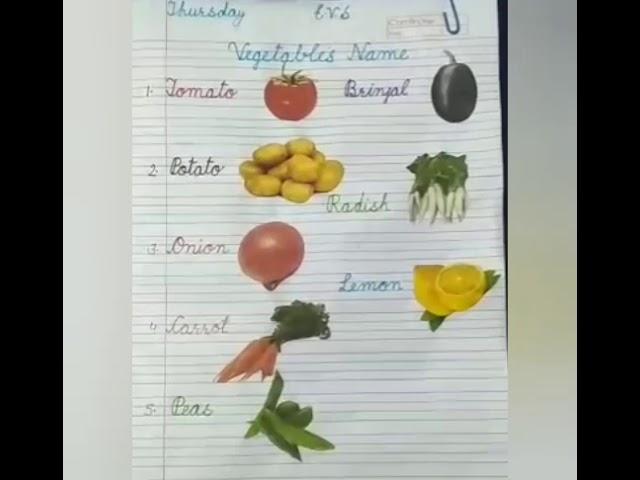 Thursday E.V.S
Vegetables Name
1. Tomato Brinjal
2. Potato
Radish
3. Onion
Lemon
4. Carrot
5. Peas